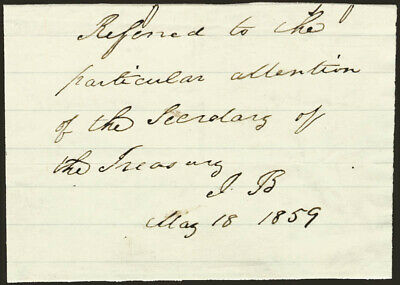 Referred to the
particular attention
of the Secretary of
the Treasury
J. B
May 18 1859